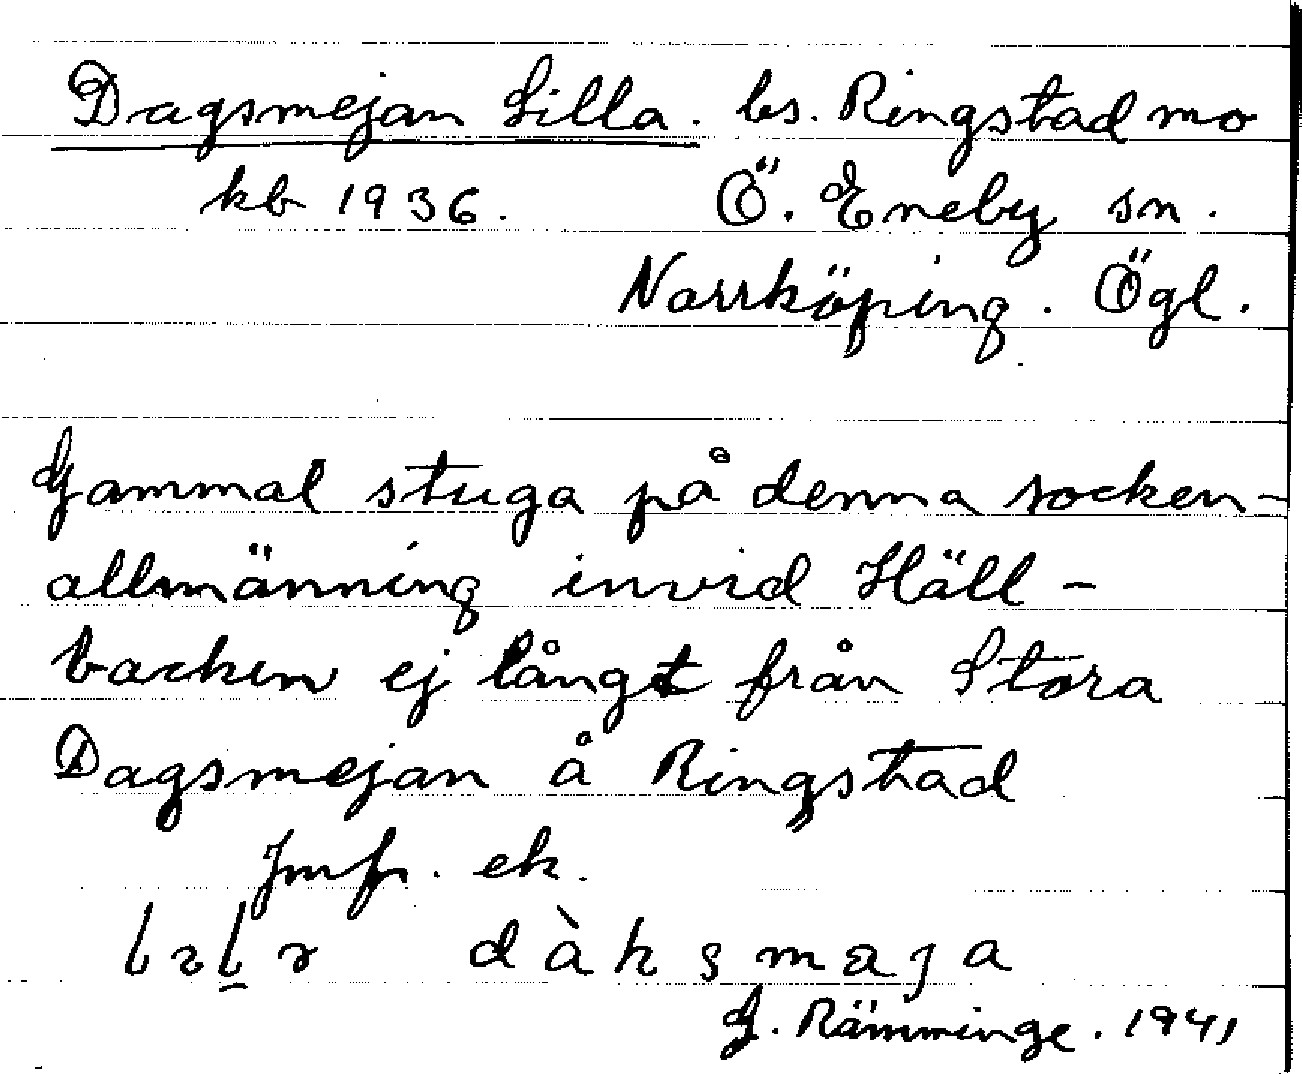 Dagsmejan Lilla. ls. Ringstad mo
kb 1936. Ö. Eneby sn.
Norrköping. Ögl.
Gammal stuga på denna socken-
allmänning invid Häll-
backen ej långt från Stora
Dagsmejan å Ringstad
Jmfr. ek.
dàksmaja
G. Rämminge. 1941